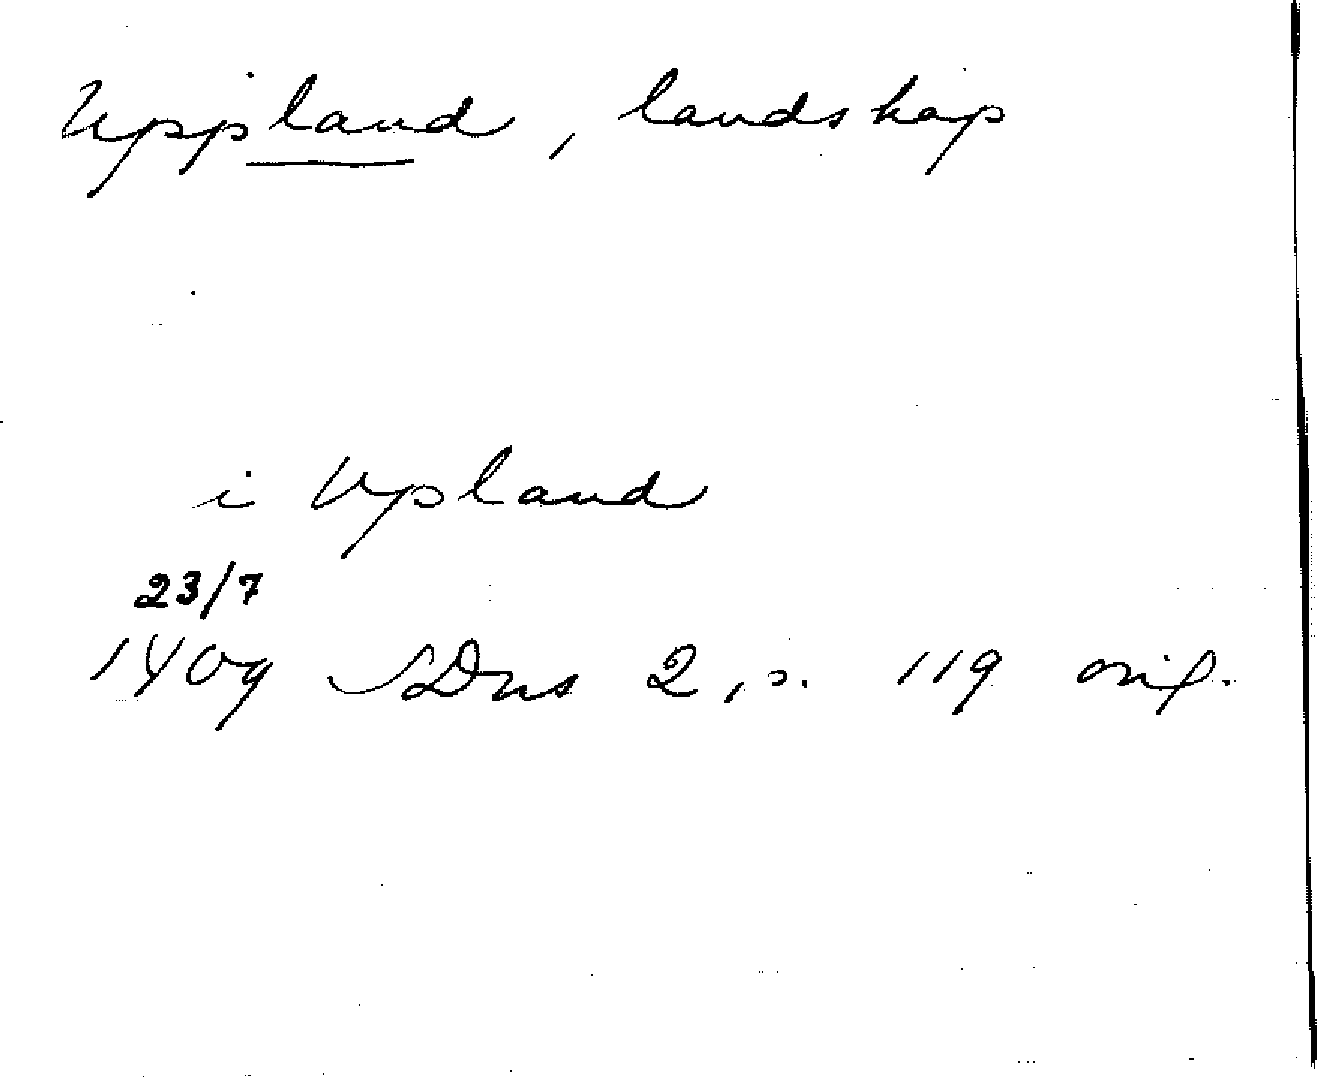 Uppland, landskap
i Vpland
23/7
1409 SDns 2, s. 119 orig.